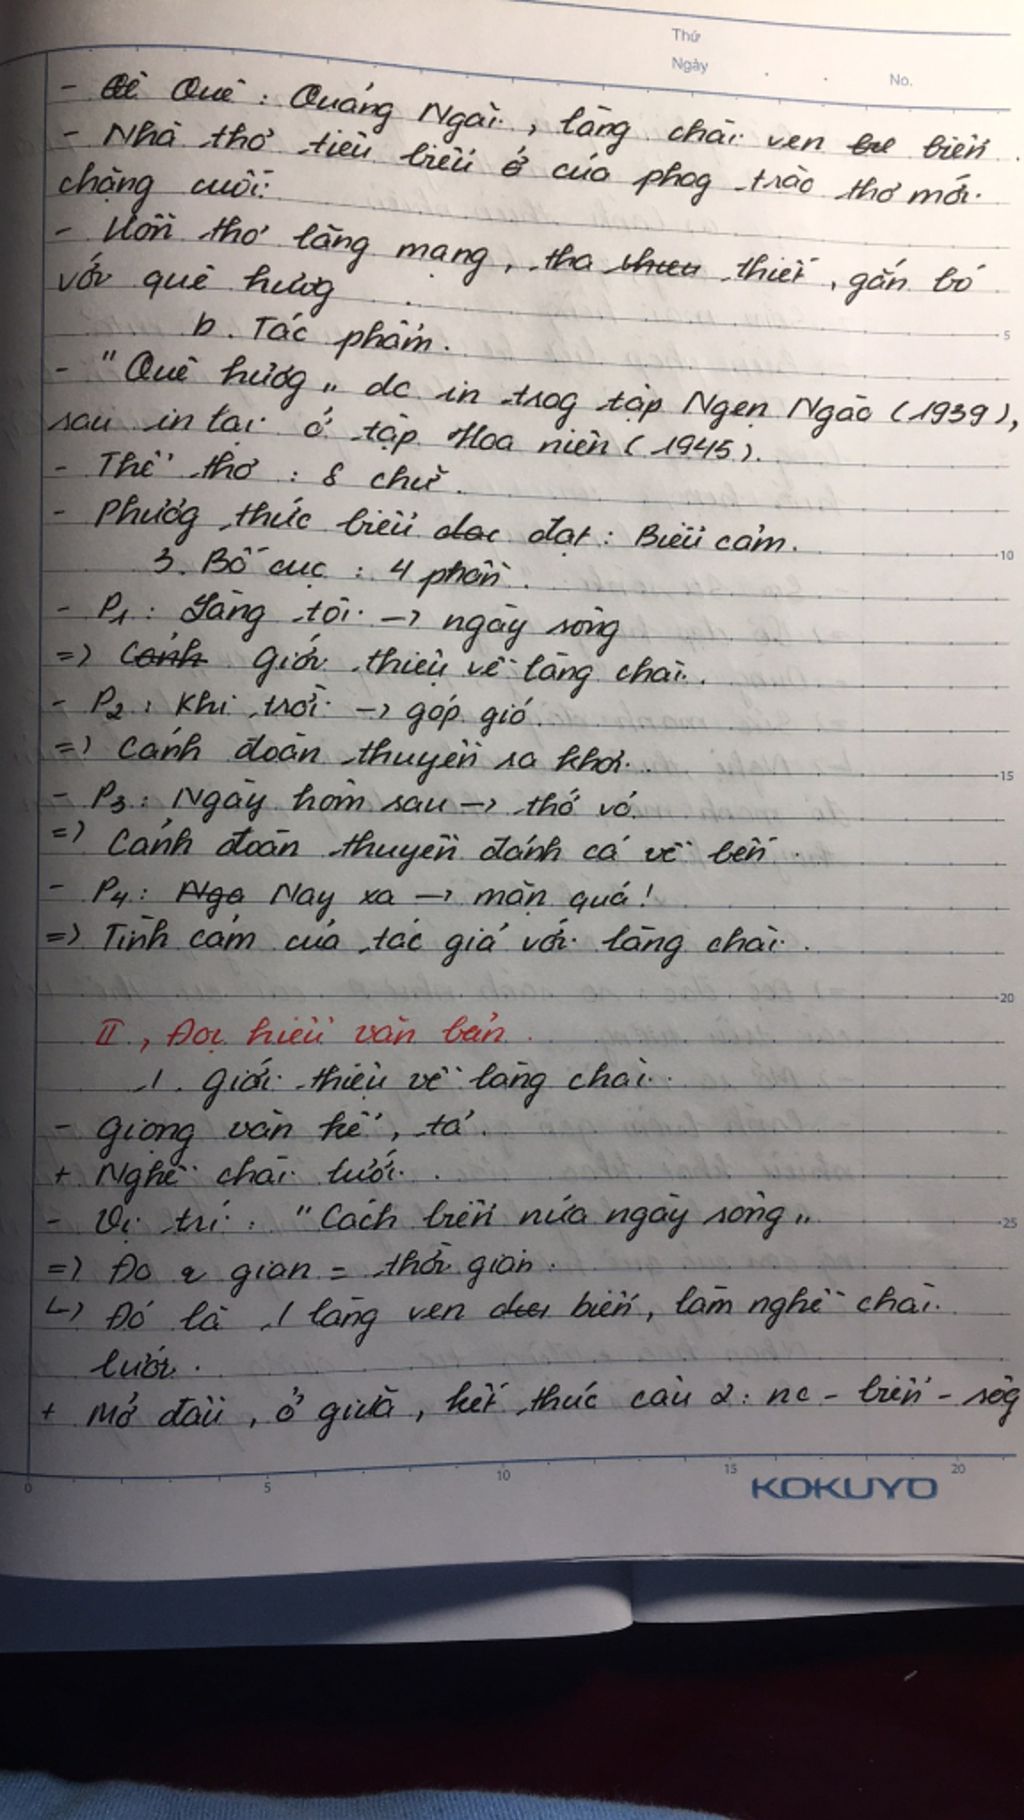 Thứ
Ngày . . No.
- Quê : Quảng Ngãi , làng chài ven biển .
- Nhà thơ tiêu biểu ở của phog trào thơ mới.
chặng cuối.
- Hồn thơ lãng mạng , tha thiết , gắn bó
với quê hươg .
b. Tác phẩm .
- "Quê hươg" dc in trog tập Ngẹn Ngào (1939),
sau in lại ở tập Hoa niên (1945).
- Thể thơ : 8 chữ .
- Phươg thức biểu đạt : Biểu cảm .
3. Bố cục : 4 phần .
- P1 : Làng tôi -> ngày sông
=> Giới thiệu về làng chài .
- P2 : Khi trời -> góp gió .
=> Cảnh đoàn thuyền ra khơi .
- P3 : Ngày hôm sau -> thớ vỏ .
=> Cảnh đoàn thuyền đánh cá về bến .
- P4 : Nay xa -> mặn quá !
=> Tình cảm của tác giả với làng chài .
II , Đọc hiểu văn bản .
1. Giới thiệu về làng chài .
- Giọng văn kể , tả .
+ Nghề chài lưới .
- Vị trí : "Cách biển nửa ngày sông"
=> Đo gian = thời gian .
↳ Đó là 1 làng ven biển , làm nghề chài
lưới .
+ Mở đầu , ở giữa , kết thúc câu 2 : nc - biển - sôg
5
10
15
20
25
0 5 10 15 20
KOKUYO